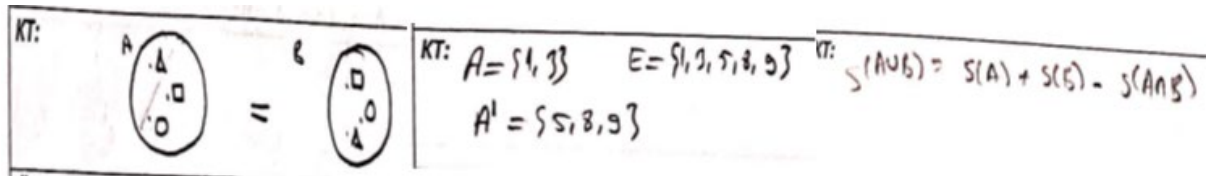 KT:
A B
=
KT: A = {1, 3} E = {1, 3, 5, 8, 9}
A' = {5, 8, 9}
KT:
S(A∪B) = S(A) + S(B) - S(A∩B)